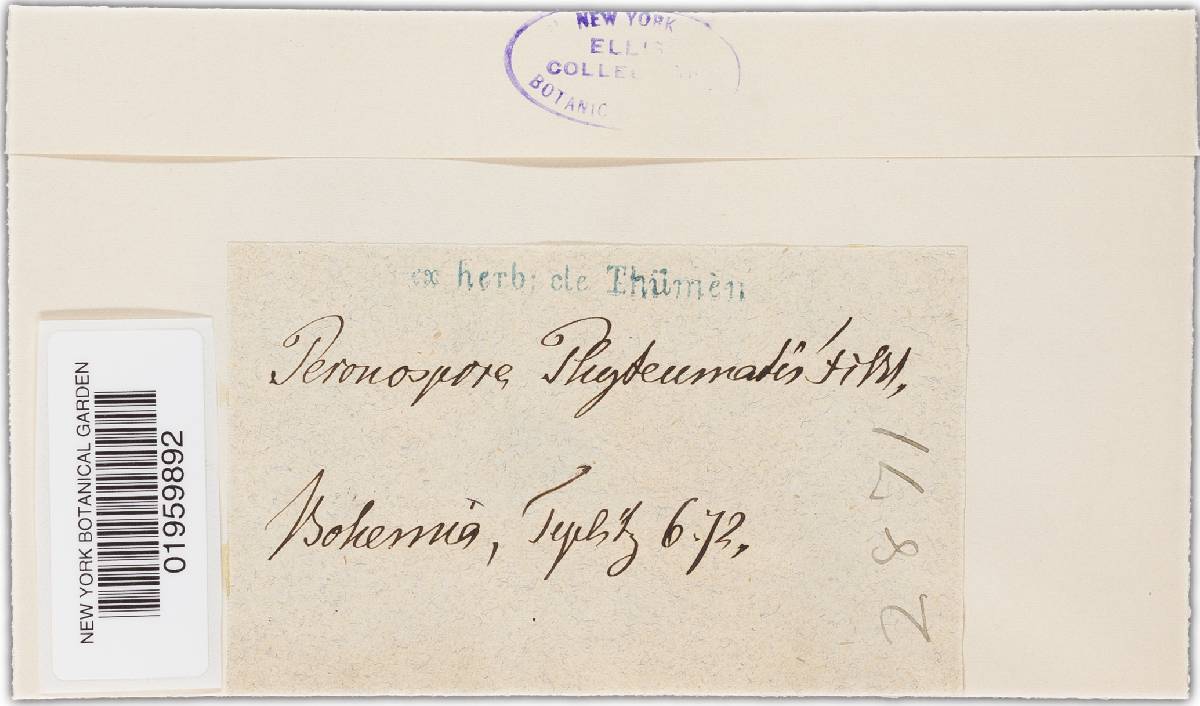 NEW YORK
ELLIS
COLLE
BOTANIC
ex herb: de Thümèn
Peronospora Phyteumatis Fckl.
Bohemia, Teplitz 6.72.
2871
NEW YORK BOTANICAL GARDEN
01959892